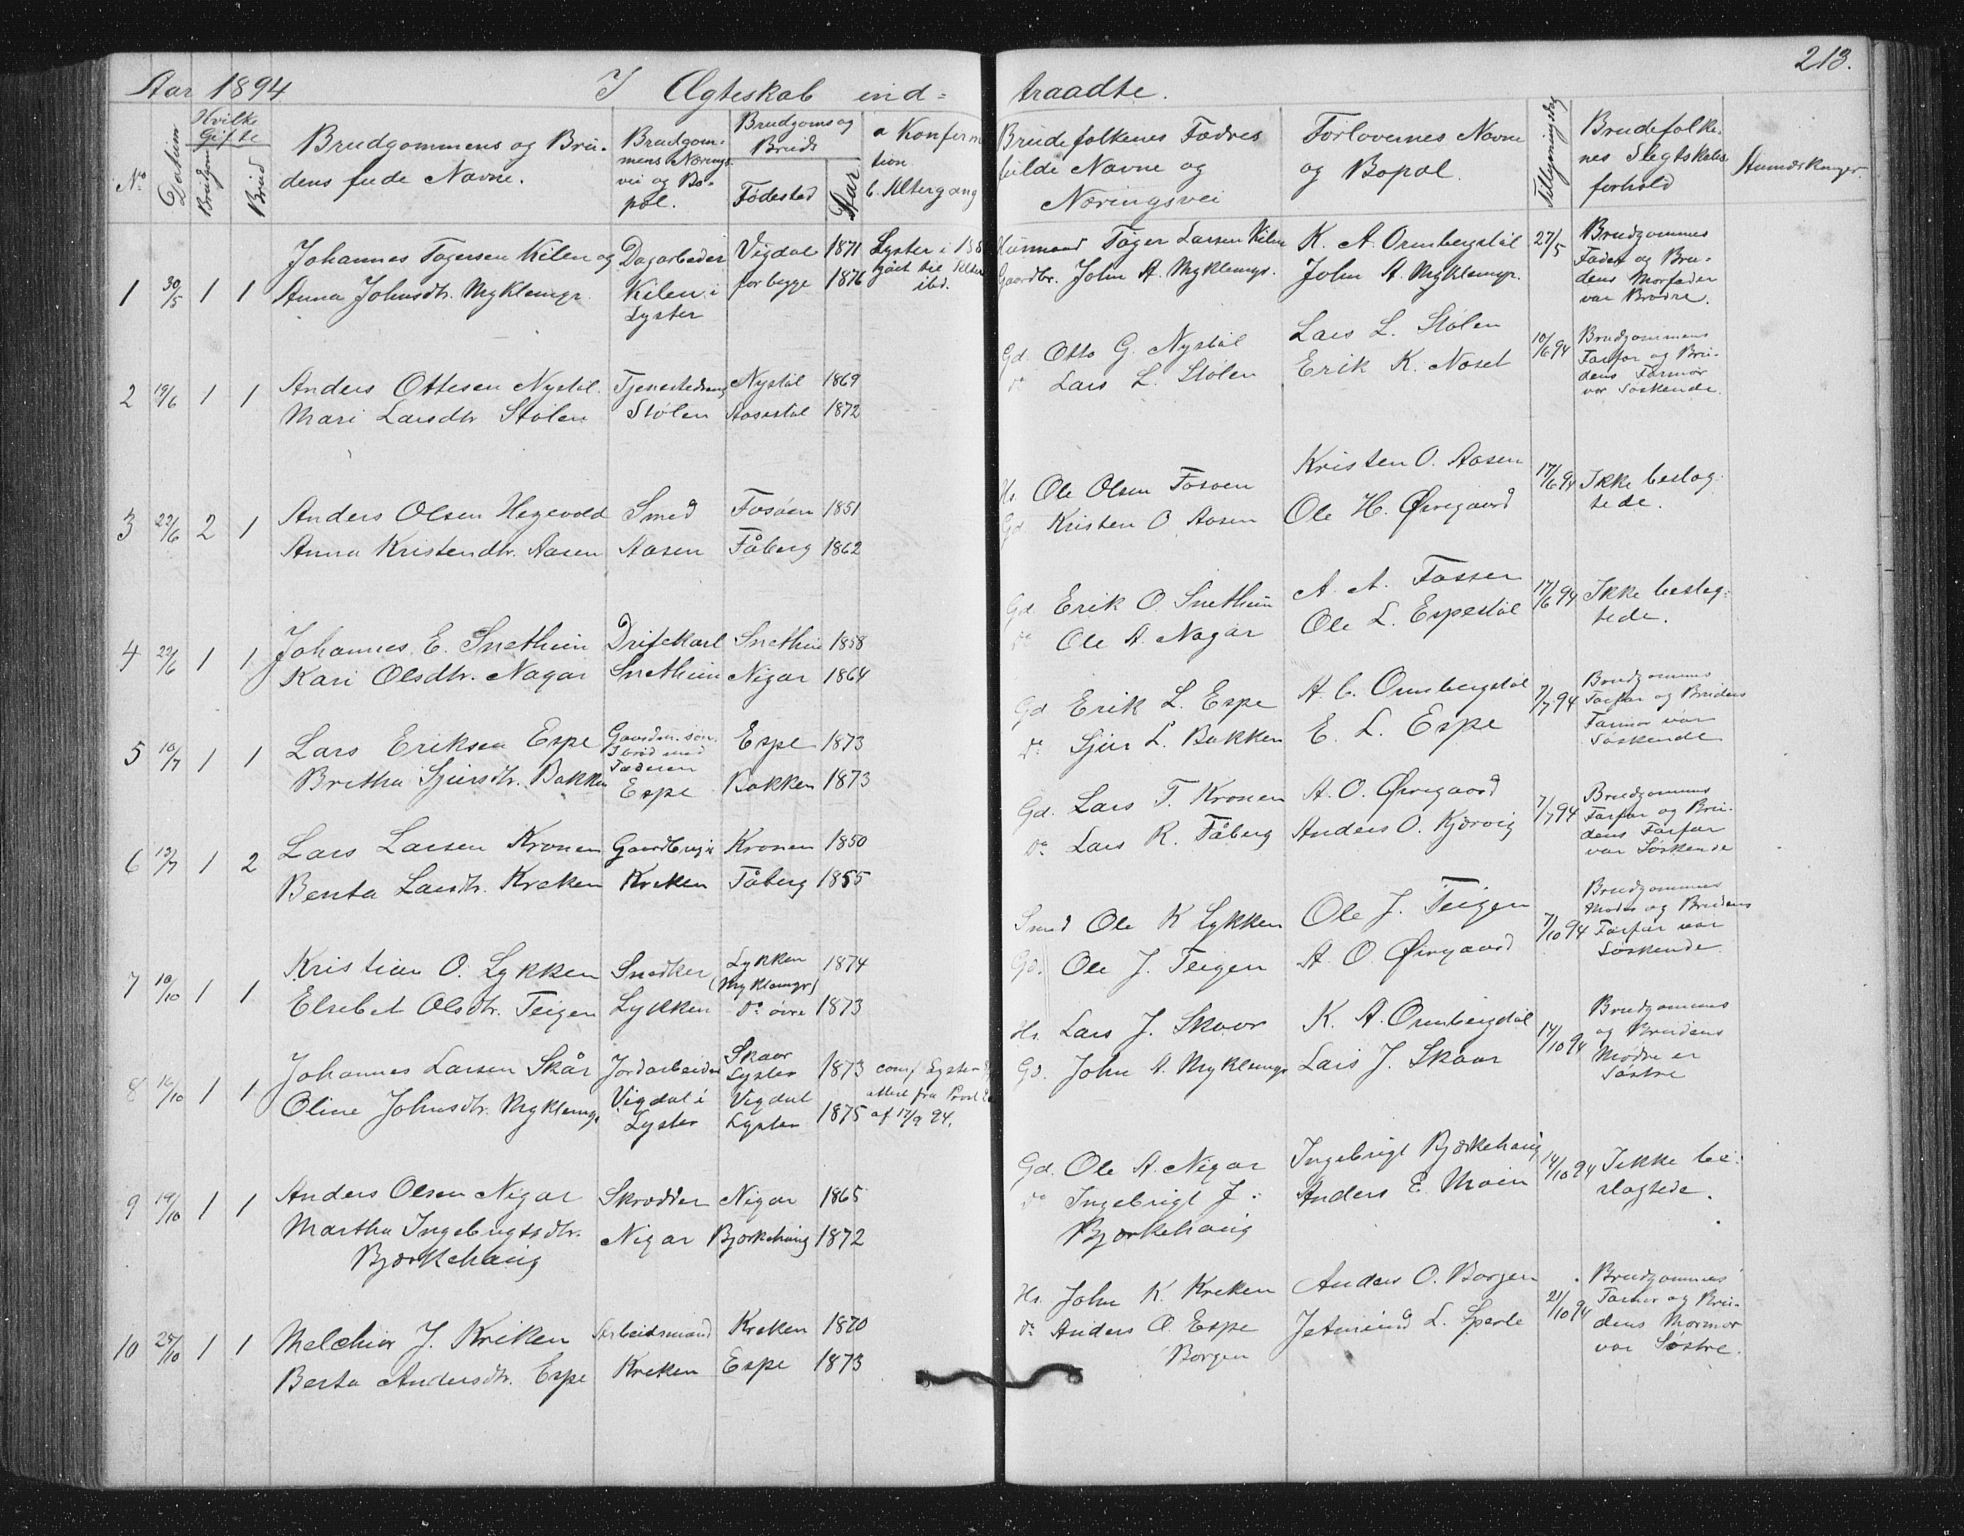 213.
Aar 1894 I Ægteskab ind= traadte.
No
Datum
Hvilke Gifte
Brudgom
Brud
Brudgommens og Bru-
dens fude Navne.
Brudgom-
mens Nærings
vei og Bo-
pæl.
Brudgoms og
Bruds
Fødested
Aar
a Konferm
tion.
b. Altergang
Brudefolkenes Fædres
fulde Navne og
Næringsvei
Forlovernes Navne
og Bopæl.
Tillysningsdag
Brudefolke-
nes Slegtskabs
forhold
Anmærkninger.
1 30/5 1 1
Johannes Tøgersen Kilen og
Anna Johnsdtr. Myklemyr.
Dagarbeder
Kilen i
Lyster
Vigdal 1871
for begge 1876
Lyster i 188
gået til Alter
ibd.
Husmand Tøger Larsen Kilen
Gaardbr. John A. Myklemyr.
K. A. Ormbergstøl
John A. Myklemyr.
27/5
Brudgommes
Fader og Bru-
dens Morfader
var Brødre.
2 19/6 1 1
Anders Ottesen Nystøl.
Mari Larsdtr Stølen
Tjenestedreng
Stølen
Nystøl 1869
Aasestøl 1872
Gd. Otto G. Nystøl
do Lars L. Stølen
Lars L. Stølen
Erik K. Noset
10/6 94
Brudgommens
Farfar og Bru-
dens Farmor
var Søskende.
3 22/6 2 1
Anders Olsen Hegevold
Anna Kristendtr. Aasen
Smed
Aasen
Fosøen 1851
Fåberg 1862
Hs. Ole Olsen Fosøen
Gd Kristen O. Aasen
Kristen O. Aasen
Ole H. Øvregaard
17/6 94
Ikke beslæg-
tede.
4 22/6 1 1
Johannes E. Snethun
Kari Olsdtr. Nagar
Driftekarl
Snethun
Snethun 1858
Nigar 1864
Gd Erik O. Snethun
do Ole A. Nagar
A. A. Fosser
Ole L. Espestøl
17/6 94
Ikke beslæg-
tede.
5 10/7 1 1
Lars Eriksen Espe
Bretha Sjursdtr. Bakken
Gaardm. søn.
Faderen
Espe
Espe 1873
Bakken 1873
Gd Erik L. Espe
do Sjur L. Bakken
A. C. Ormbergstøl
E. L. Espe
7/7 94
Brudgommens
Farfar og Brudens
Farmor var
Søskende
6 13/7 1 2
Lars Larsen Kronen
Berta Larsdtr. Kreken
Gaardbrug i
Kreken
Kronen 1850
Fåberg 1855
Gd. Lars T. Kronen
do Lars R. Fåberg
A. O. Øvregaard
Anders O. Kjørvig
7/7 94
Brudgommens
Farfar og Bru-
dens Farfar
var Søskende
7 10/10 1 1
Kristian O. Lykken
Elsebet Olsdtr. Teigen
Snedker
Lykken
Lykken 1874
(Myklemyr)
do øvre 1873
Smed Ole K Lykken
Gd. Ole J. Teigen
Ole J. Teigen
A O Øvregaard
7/10 94
Brudgommens
Moder og Brudens
Farfar var
Søskende.
8 16/10 1 1
Johannes Larsen Skår
Oline Johnsdtr. Myklemyr
Jordarbeider
Vigdal i
Lyster
Skaar
Lyster 1873
Vigdal
Lyster 1875
conf Lyster
attest fra Provst
af 17/9 94.
Hs. Lars J. Skaar
Gd. John A. Myklemyr
K. A. Ormbergstøl
Lars J. Skaar
14/10 94
Brudgommens
og Brudens
Mødre er
Søstre
9 19/10 1 1
Anders Olsen Nigar
Martha Ingebrigtsdtr.
Bjørkehaug
Skrædder
Nigar
Nigar 1865
Bjørkehaug 1872
Gd. Ole A. Nigar
do Ingebrigt J.
Bjørkehaug
Ingebrigt Bjørkehaug
Anders E. Moen
14/10 94
Ikke be-
slægtede.
10 25/10 1 1
Melchior J. Kreken
Berta Andersdtr. Espe
Arbeidsmand
Kreken
Kreken 1870
Espe 1873
Hs. John K. Kreken
do Anders O. Espe
Borgen
Anders O. Borgen
Jetmund L. Sperle
21/10 94
Brudgommens
Farmor og Bru-
dens Mormor
var Søstre.